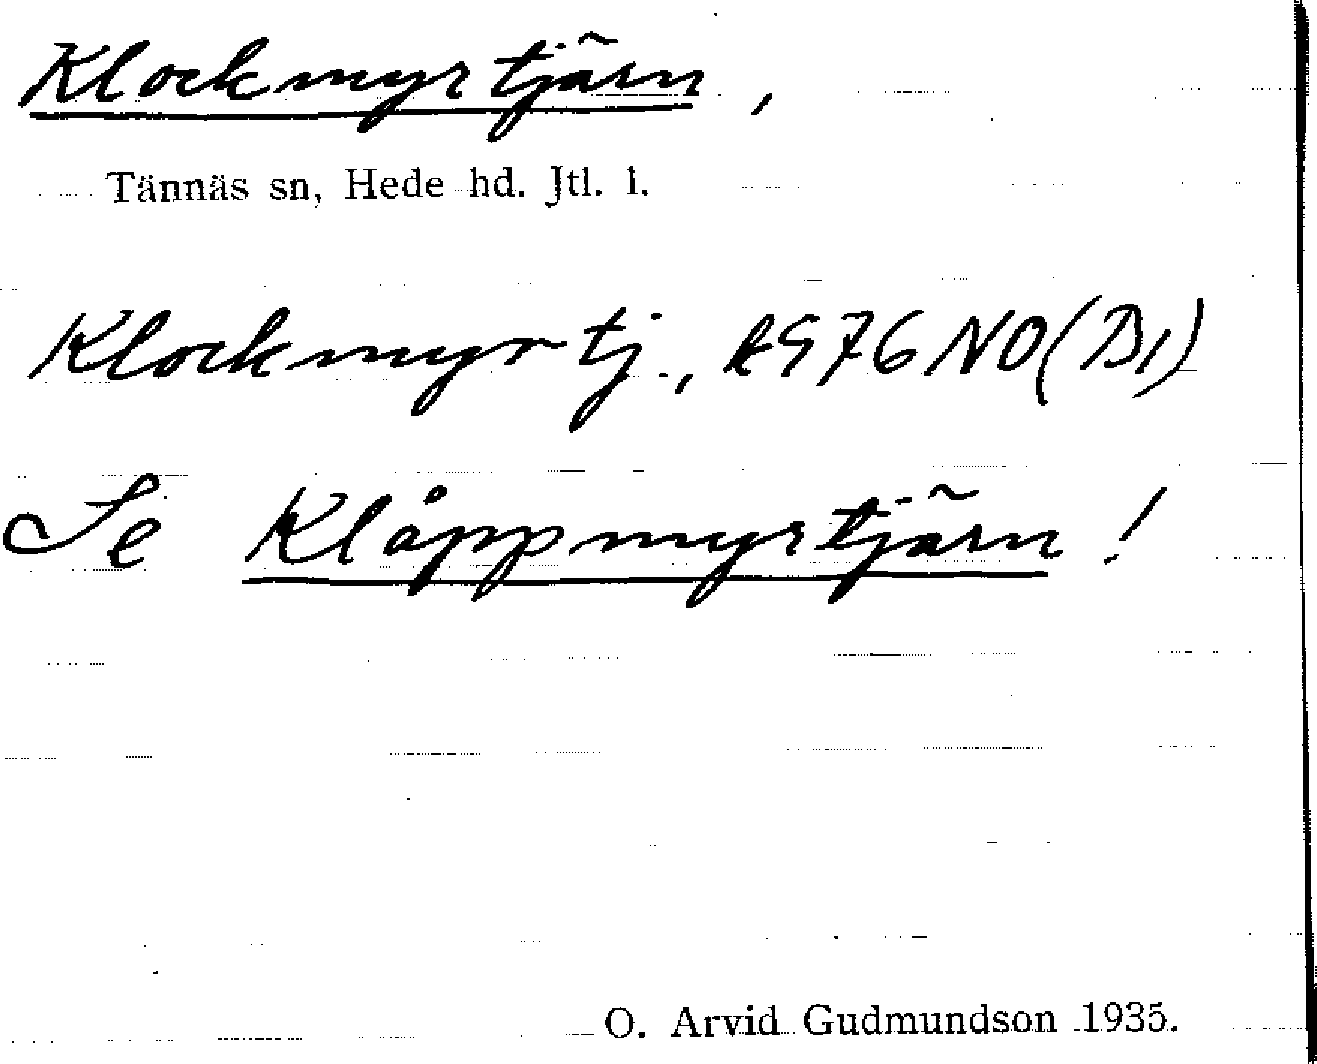 Klockmyrtjärn,
Tännäs sn, Hede hd. Jtl. l.
Klockmyrtj., k976NO(B1)
Se Klåppmyrtjärn!
O. Arvid Gudmundson 1935.